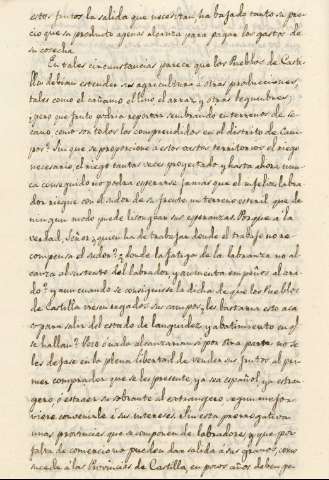 estos frutos la salida que necesitan, ha bajado tanto su pre-
cio que su producto apenas alcanza para pagar los gastos de
su cosecha.
En tales circunstancias parece que los Pueblos de Casti-
lla debian estender su agricultura á otras producciones,
tales como el cañamo el lino el arroz, y otras legumbres;
¿pero que fruto podria reportar sembrando en terrenos de se-
cano como son todos los comprendidos en el distrito de Cam-
pos? Sin que se proporcione á estos vastos territorios el riego
necesario, el riego tantas veces proyectado, y hasta ahora nun-
ca conseguido no podrá esperarse jamas que el infeliz labra-
dor riegue con el sudor de su frente un terreno esteril que de
ningun modo puede lisongear sus esperanzas. Porque á la
verdad, Señor, ¿quien ha de trabajar donde el trabajo no re-
compensa el sudor? ¿donde la fatiga de la labranza no al-
canza al sustento del labrador, y aumenta empeños al ara-
do? y aun cuando se consiguiese la dicha de que los Pueblos
de Castilla viesen regados sus campos, ¿les bastaria esto acaso
para salir del estado de languidez, y abatimiento en q.e
se hallan? Poco ó nada alcanzariamos por otra parte no se
les dejase en la plena libertad de vender sus frutos al pri-
mer comprador que se les presente, ya sea español, ya estran-
gero ó estraer su sobrante al extrangero segun mejor
viere convenirle á sus intereses. Sin esta prerrogativa
unas provincias que se componen de labradores, y que por
falta de comercio no pueden dar salida á sus granos, como
suceda á las Provincias de Castilla, en pocos años deben pe-